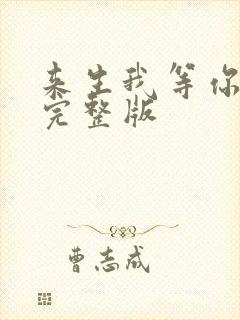 来生我等你
完整版
曹志成